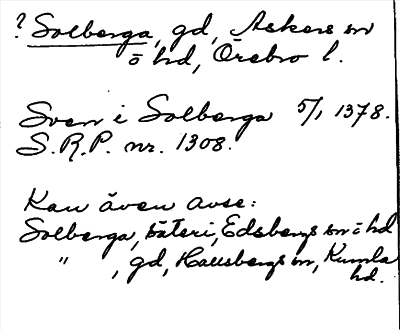 ? Solberga, gd, Askers sn
ö hd, Örebro l.
Sven i Solberga 5/1 1378.
S.R.P. nr. 1308.
Kan även avse:
Solberga, säteri, Edsbergs sn o hd
" , gd, Hallsbergs sn, Kumla
hd.